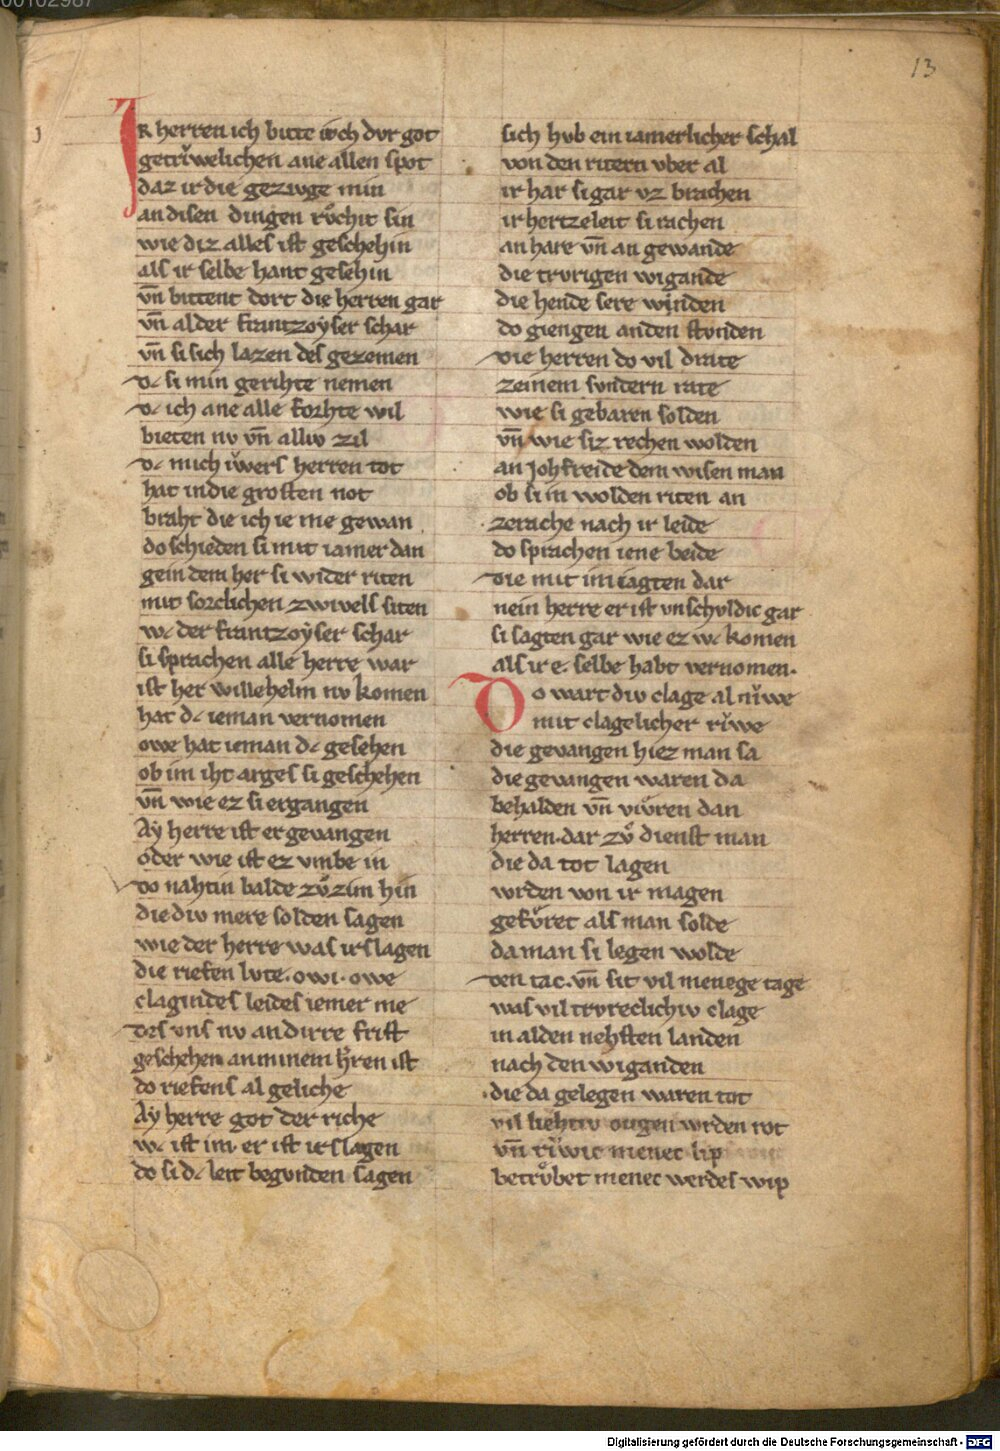 00102987
13
J
IR herren ich bitte iͮch dvr got
getriͮwelichen ane allen spot
daz ir die gezivge min
an disen dingen rvͦchit sin
wie diz alles ist geschehin
als ir selbe hant gesehin
vn̄ bittent dort die herren gar
vn̄ al der frantzoẏser schar
vn̄ si sich lazen des gezemen
dc si min gerihte nemen
dc ich ane alle forhte wil
bieten nv vn̄ alliv zil
dc mich iͮwers herren tot
hat in die grosten not
braht die ich ie me gewan
do schieden si mit iamer dan
gein dem her si wider riten
mit sorclichen zwivels siten
wc der frantzoẏser schar
si sprachen alle herre war
ist her willehelm nv komen
hat dc ieman vernomen
owe hat ieman dc gesehen
ob im iht arges si geschehen
vn̄ wie ez si ergangen
Ay herre ist er gevangen
oder wie ist ez vmbe in
do nahtin balde zvͦzim hin
die div mere solden sagen
wie der herre was irslagen
die riefen lvte. owi. owe
clagindes leides iemer me
des vns nv an dirre frist
geschehen an minem h̄ren ist
do riefens al geliche
Ay herre got der riche
wc ist im. er ist irslagen
do si dc leit begvnden sagen
sich hvb ein iamerlicher schal
von den ritern vber al
ir har si gar vz brachen
ir hertzeleit si rachen
an hare vn̄ an gewande
die trvrigen wigande
die hende sere winden
do giengen an den stvnden
die herren do vil drate
zeinem svndern rate
wie si gebaren solden
vn̄ wie siz rechen wolden
an Johfreide dem wisen man
ob si in wolden riten an
zerache nach ir leide
do sprachen iene beide
die mit im iagten dar
nein herre er ist vnschvldic gar
si sagten gar wie ez wc komen
als ir e. selbe habt vernomen.
Do wart div clage al niͮwe
mit clagelicher riͮwe
die gevangen hiez man sa
die gevangen waren da
behalden vn̄ vuͤren dan
herren. dar zvͦ dienst man
die da tot lagen
wrden von ir magen
gefvͤret als man solde
da man si legen wolde
den tac. vn̄ sit vil menege tage
was vil trvreclichiv clage
in al den nehsten landen
nach den wiganden
die da gelegen waren tot
vil liehtiv ougen wrden rot
vn̄ riͮwic menec lip
betrvͤbet menec werdes wip
Digitalisierung gefördert durch die Deutsche Forschungsgemeinschaft - DFG